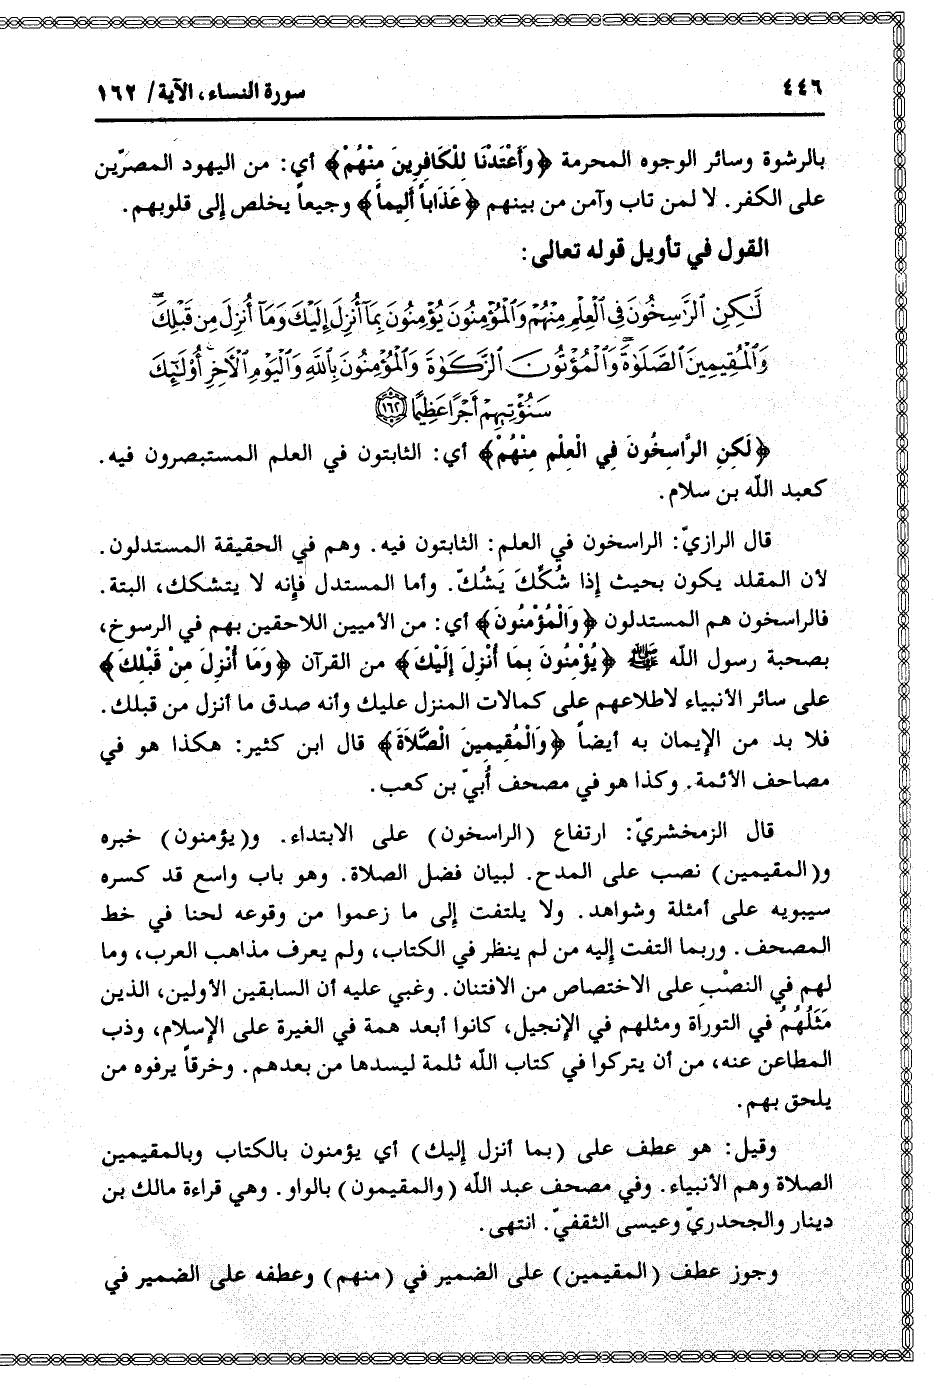 ٤٤٦
سورة النساء، الآية/ ١٦٢
بالرشوة وسائر الوجوه المحرمة ﴿وَأَعْتَدْنَا لِلْكَافِرِينَ مِنْهُمْ﴾ أي: من اليهود المصرّين
على الكفر. لا لمن تاب وآمن من بينهم ﴿عَذَاباً أَلِيماً﴾ وجيعاً يخلص إلى قلوبهم.
القول في تأويل قوله تعالى:
لَّٰكِنِ ٱلرَّٰسِخُونَ فِى ٱلْعِلْمِ مِنْهُمْ وَٱلْمُؤْمِنُونَ يُؤْمِنُونَ بِمَآ أُنزِلَ إِلَيْكَ وَمَآ أُنزِلَ مِن قَبْلِكَ ۚ
وَٱلْمُقِيمِينَ ٱلصَّلَوٰةَ ۚ وَٱلْمُؤْتُونَ ٱلزَّكَوٰةَ وَٱلْمُؤْمِنُونَ بِٱللَّهِ وَٱلْيَوْمِ ٱلْأَخِرِ أُوْلَٰٓئِكَ
سَنُؤْتِيهِمْ أَجْرًا عَظِيمًا ١٦٢
﴿لَكِنِ الرَّاسِخُونَ فِي الْعِلْمِ مِنْهُمْ﴾ أي: الثابتون في العلم المستبصرون فيه.
كعبد اللّه بن سلام.
قال الرازيّ: الراسخون في العلم: الثابتون فيه. وهم في الحقيقة المستدلون.
لأن المقلد يكون بحيث إذا شُكِّكَ يَشُكّ. وأما المستدل فإنه لا يتشكك، البتة.
فالراسخون هم المستدلون ﴿وَالْمُؤْمِنُونَ﴾ أي: من الأميين اللاحقين بهم في الرسوخ،
بصحبة رسول اللّه ﷺ ﴿يُؤْمِنُونَ بِمَا أُنْزِلَ إِلَيْكَ﴾ من القرآن ﴿وَمَا أُنْزِلَ مِنْ قَبْلِكَ﴾
على سائر الأنبياء لاطلاعهم على كمالات المنزل عليك وأنه صدق ما أنزل من قبلك.
فلا بد من الإيمان به أيضاً ﴿وَالْمُقِيمِينَ الْصَّلَاةَ﴾ قال ابن كثير: هكذا هو في
مصاحف الأئمة. وكذا هو في مصحف أُبيّ بن كعب.
قال الزمخشريّ: ارتفاع (الراسخون) على الابتداء. و(يؤمنون) خبره
و(المقيمين) نصب على المدح. لبيان فضل الصلاة. وهو باب واسع قد كسره
سيبويه على أمثلة وشواهد. ولا يلتفت إلى ما زعموا من وقوعه لحنا في خط
المصحف. وربما التفت إليه من لم ينظر في الكتاب، ولم يعرف مذاهب العرب، وما
لهم في النصْب على الاختصاص من الافتنان. وغبي عليه أن السابقين الأولين، الذين
مَثَلُهُمُ في التوراة ومثلهم في الإنجيل، كانوا أبعد همة في الغيرة على الإسلام، وذب
المطاعن عنه، من أن يتركوا في كتاب اللّه ثلمة ليسدها من بعدهم. وخرقاً يرفوه من
يلحق بهم.
وقيل: هو عطف على (بما أنزل إليك) أي يؤمنون بالكتاب وبالمقيمين
الصلاة وهم الأنبياء. وفي مصحف عبد اللّه (والمقيمون) بالواو. وهي قراءة مالك بن
دينار والجحدريّ وعيسى الثقفيّ. انتهى.
وجوز عطف (المقيمين) على الضمير في (منهم) وعطفه على الضمير في